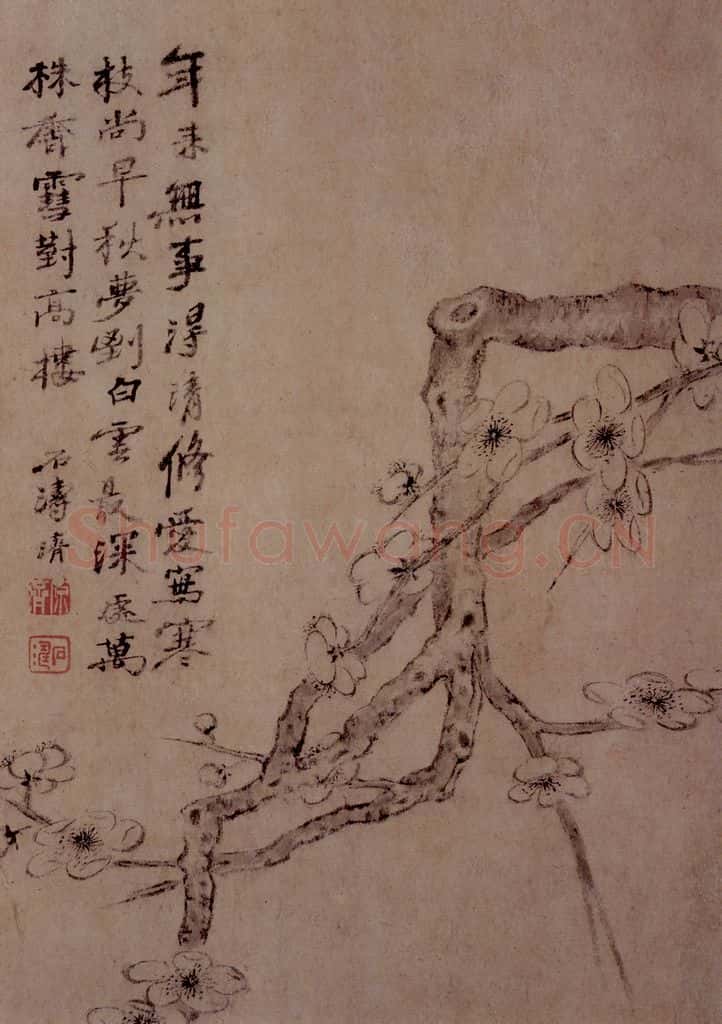 年来無事淂清修愛寫寒
枝尚早秋夢到白雲最深處萬
株齊雪對高樓
石濤濟
原濟
石濤
Shufawang.CN